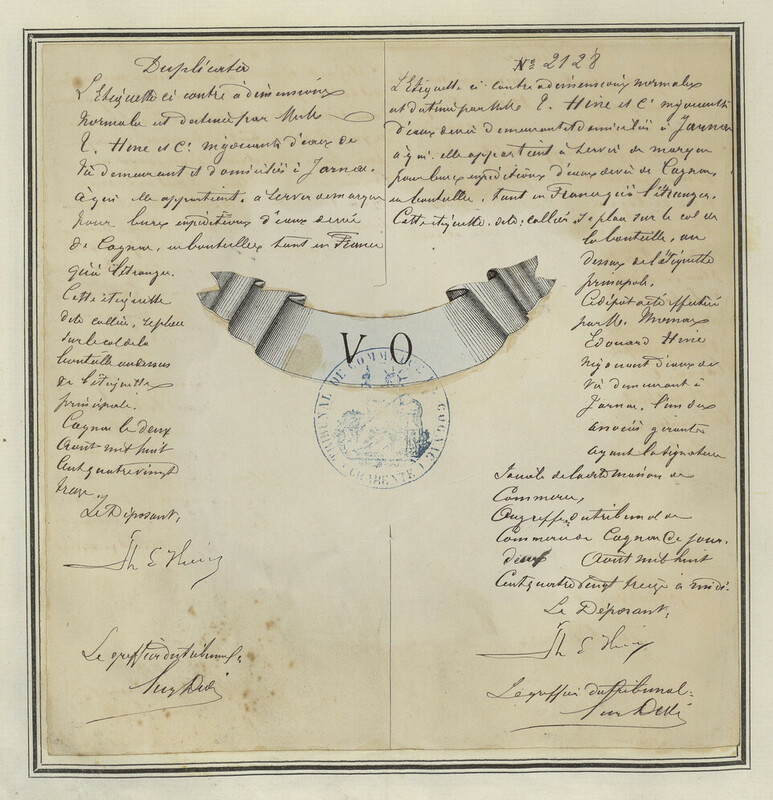 Duplicata
L'Etiquette ci contre a dimensions
normales est destinée par M
T. Hine et Cie négociants d'eaux de
vie demeurant et domiciliés à Jarnac
à qui elle appartient, à servir de marque
pour leurs expéditions d'eaux de vie
de Cognac, en bouteilles tant en France
qu'à l'étranger.
Cette étiquette
dite collier, se place
sur le col de la
bouteille au dessus
de l'étiquette
principale.
Cognac le deux
Août mil huit
cent quatre vingt
treize.
Le Déposant,
Th E Hine
Le greffier du tribunal,
No 2128
L'Etiquette ci contre a dimensions normales
est destinée par M T. Hine et Cie négociants
d'eaux de vie demeurant et domiciliés à Jarnac
à qui elle appartient à servir de marque
pour leurs expéditions d'eaux de vie de Cognac
en bouteilles, tant en France qu'à l'étranger.
Cette étiquette dite: collier se place sur le col de
la bouteille, au
dessus de l'étiquette
principale.
Ce dépôt a été effectué
par M. Thomas
Edouard Hine
négociant d'eaux de
vie demeurant à
Jarnac, l'un des
associés gérants
ayant la signature
sociale de la dite maison de
Commerce,
Au greffe du tribunal de
Commerce de Cognac ce jour
deux Août mil huit
cent quatre vingt treize à midi.
Le Déposant,
Th E Hine
Le greffier du tribunal:
V O
TRIBUNAL DE COMMERCE DE COGNAC
CHARENTE